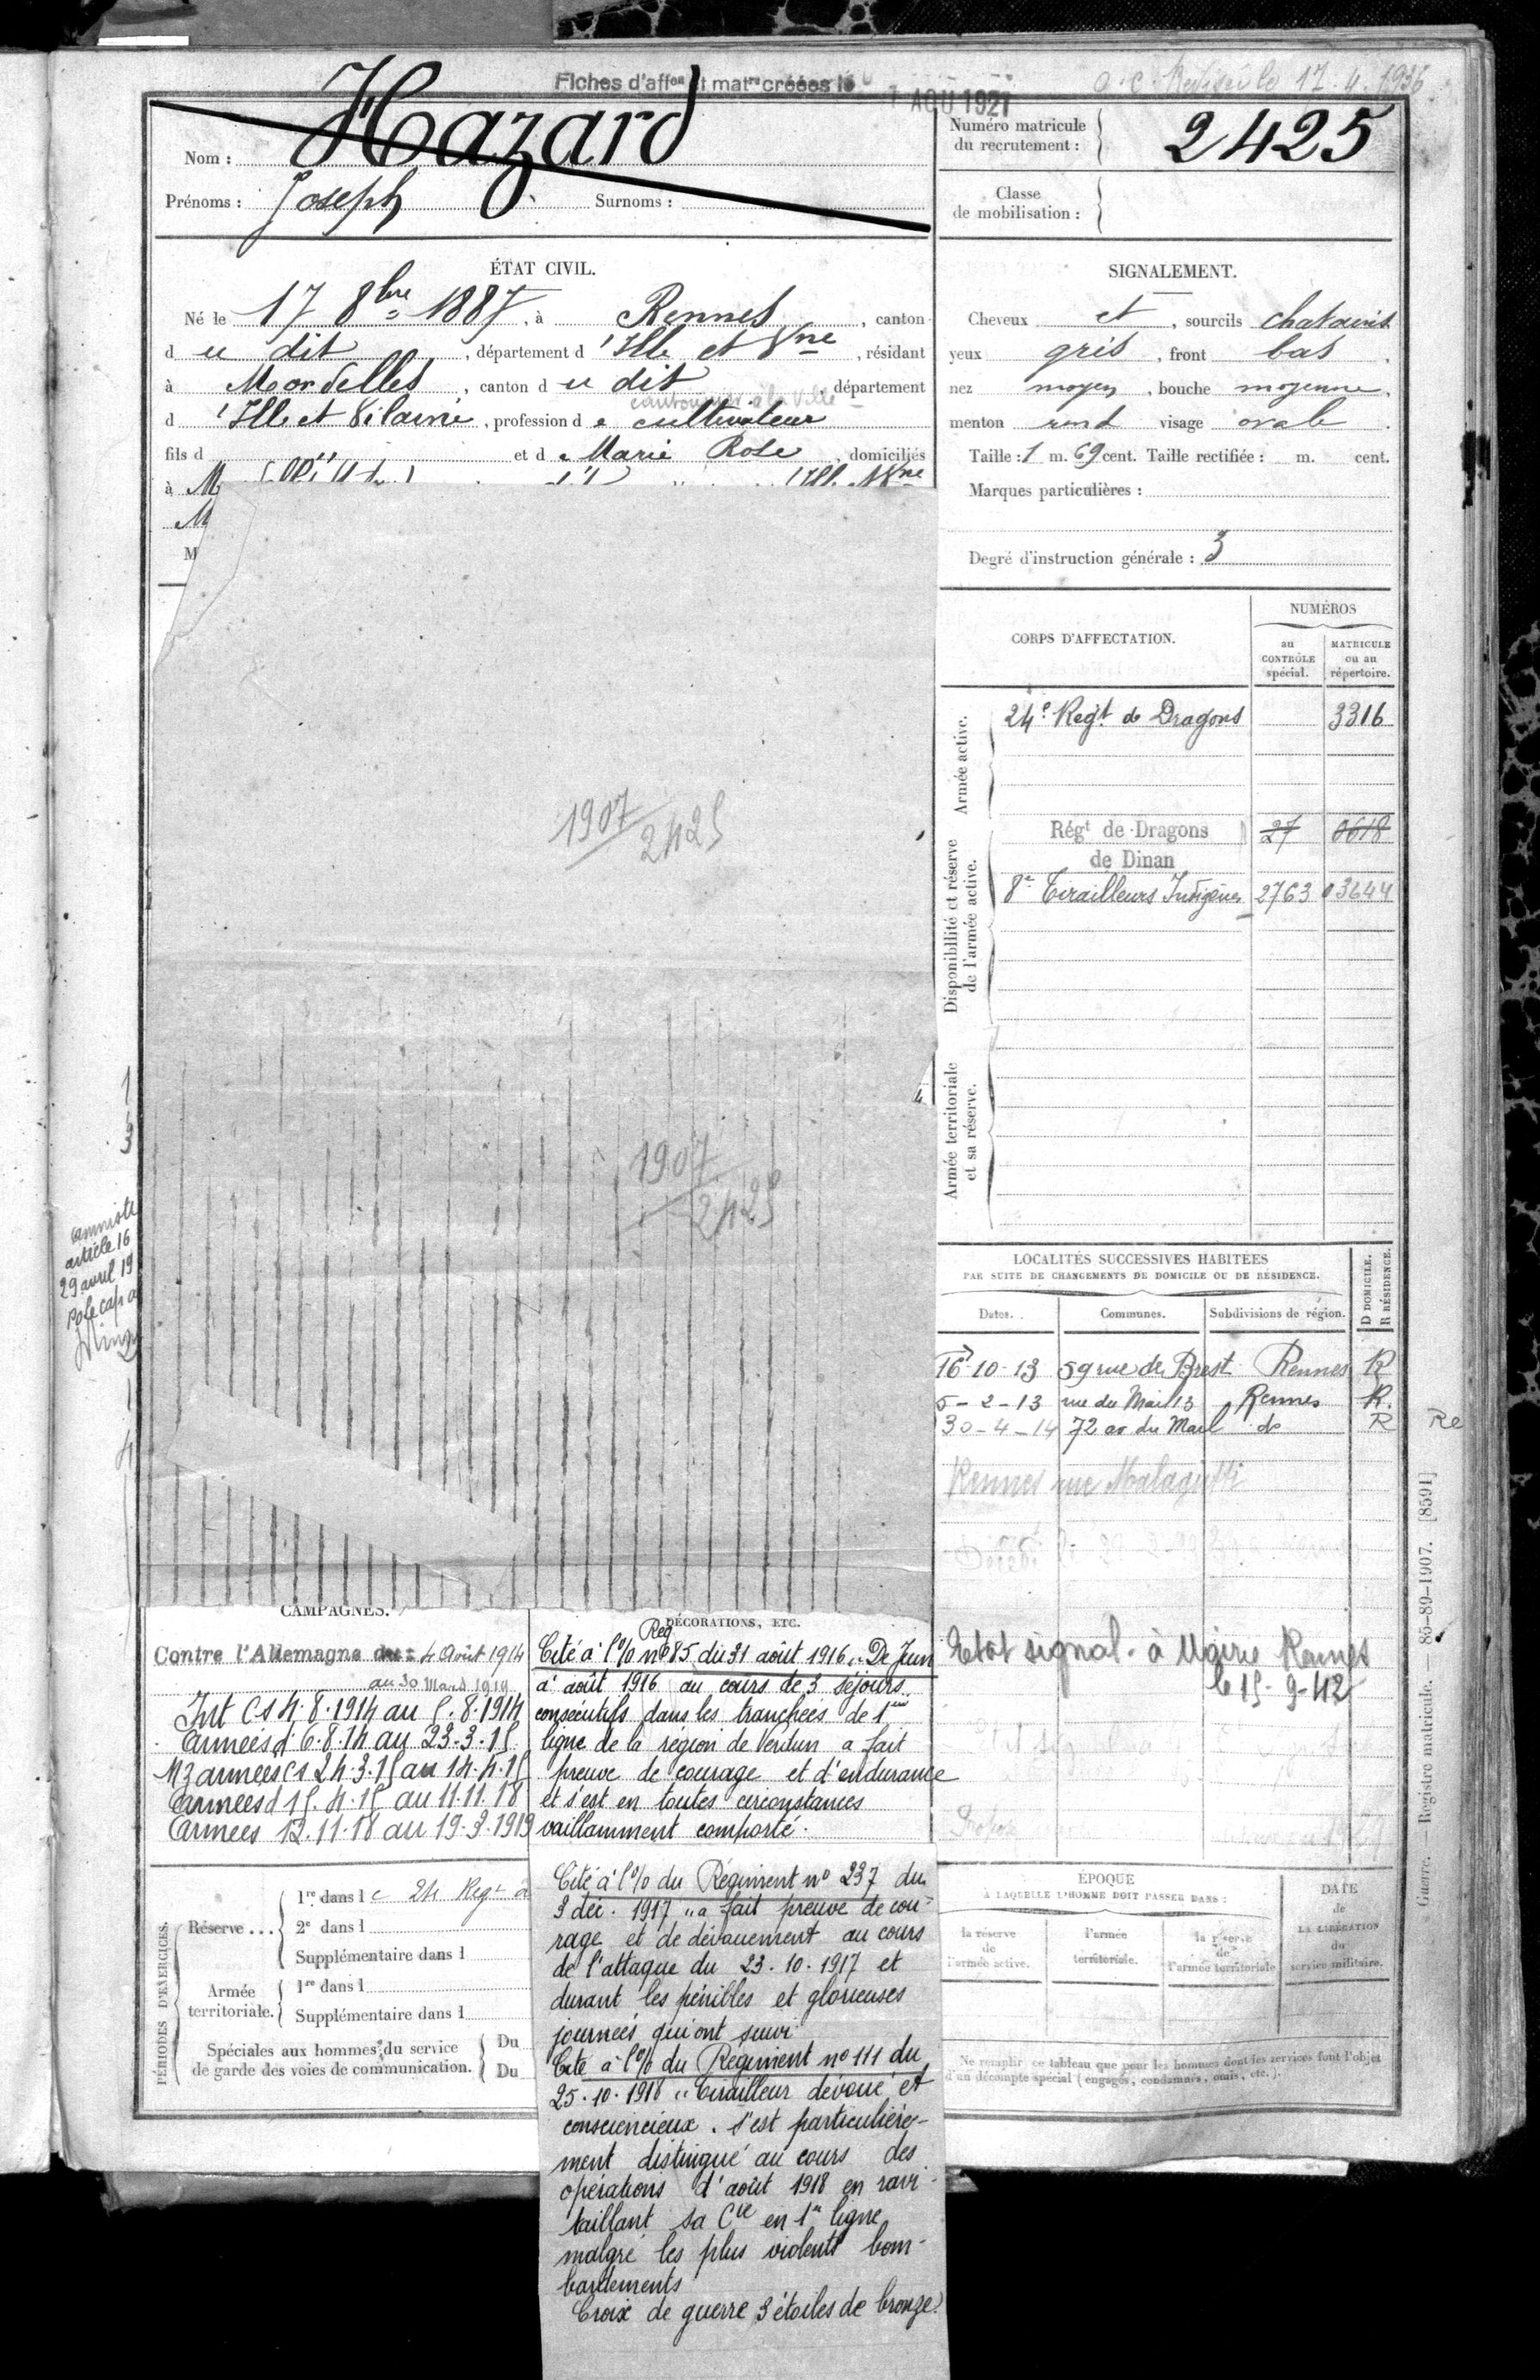 Fiches d'affon et matre créées le
7 AOU 1927
a.c. Révisé le 17.4.1936
Nom : Hazard
Prénoms : Joseph Surnoms :
Numéro matricule
du recrutement : 2425
Classe
de mobilisation :
ÉTAT CIVIL.
Né le 17 8bre 1887, à Rennes, canton
du dit, département d'Ille et Vne, résidant
à Mordelles, canton du dit, département
cantonnier à la ville
d'Ille et Vilaine, profession de cultivateur
fils d et de Marie Rose, domiciliés
à M
M
M
SIGNALEMENT.
Cheveux et, sourcils chatains
yeux gris, front bas.
nez moyen, bouche moyenne.
menton rond visage ovale.
Taille : 1 m. 69 cent. Taille rectifiée : m. cent.
Marques particulières :
Degré d'instruction générale : 3
1907
2425
1907
2425
1
3
amniste
article 16
29 avril 19
CORPS D'AFFECTATION.
NUMÉROS
au
CONTRÔLE
spécial.
MATRICULE
ou au
répertoire.
Armée active.
24e Regt de Dragons 3316
Disponibilité et réserve
de l'armée active.
Régt de Dragons 27 0618
de Dinan
8e Tirailleurs Indigènes 2763 03644
Armée territoriale
et sa réserve.
LOCALITÉS SUCCESSIVES HABITÉES
PAR SUITE DE CHANGEMENTS DE DOMICILE OU DE RÉSIDENCE.
Dates. Communes. Subdivisions de région.
D DOMICILE.
R RÉSIDENCE.
16-10-13 59 rue de Brest Rennes R
5-2-13 rue du Mail 13 Rennes R.
30-4-14 72 av du Mail do R
Re
Rennes rue Malaguti
Etat signal. à Mairie Rennes
le 15-9-42
CAMPAGNES.
Contre l'Allemagne du 4 Août 1914
au 30 Mars 1919
Int CS 4.8.1914 au 5.8.1914
Armées d 6.8.14 au 23.3.15
Mz armées CS 24.3.15 au 14.4.15
Armées d 15.4.15 au 11.11.18
Armées 12.11.18 au 19.3.1919
DÉCORATIONS, ETC.
Reg
Cité à l'O/ no 85 du 31 août 1916 „ De Juin
à août 1916 au cours de 3 séjours
consécutifs dans les tranchées de 1ère
ligne de la région de Verdun a fait
preuve de courage et d'endurance
et s'est en toutes circonstances
vaillamment comporté.
Cité à l'O/ du Régiment no 237 du
3 déc. 1917 „ a fait preuve de cou-
rage et de dévouement au cours
de l'attaque du 23.10.1917 et
durant les pénibles et glorieuses
journées qui ont suivi
Cité à l'O/ du Régiment no 111 du
25.10.1918 „ Tirailleur dévoué et
consciencieux. S'est particulière-
ment distingué au cours des
opérations d'août 1918 en ravi-
taillant sa Cie en 1re ligne
malgré les plus violents bom-
bardements
Croix de guerre 3 étoiles de bronze.
PÉRIODES D'EXERCICES.
Réserve... 1re dans le 24 Regt d
2e dans l
Supplémentaire dans l
Armée
territoriale. 1re dans l
Supplémentaire dans l
Spéciales aux hommes du service
de garde des voies de communication. Du
Du
ÉPOQUE
À LAQUELLE L'HOMME DOIT PASSER DANS :
la réserve
de
l'armée active.
l'armée
territoriale.
la réserve
de
l'armée territoriale
DATE
de
LA LIBÉRATION
du
service militaire.
Ne remplir ce tableau que pour les hommes dont les services font l'objet
d'un décompte spécial (engagés, condamnés, omis, etc.).
Guerre. — Registre matricule. — 85-89-1907. [8591]